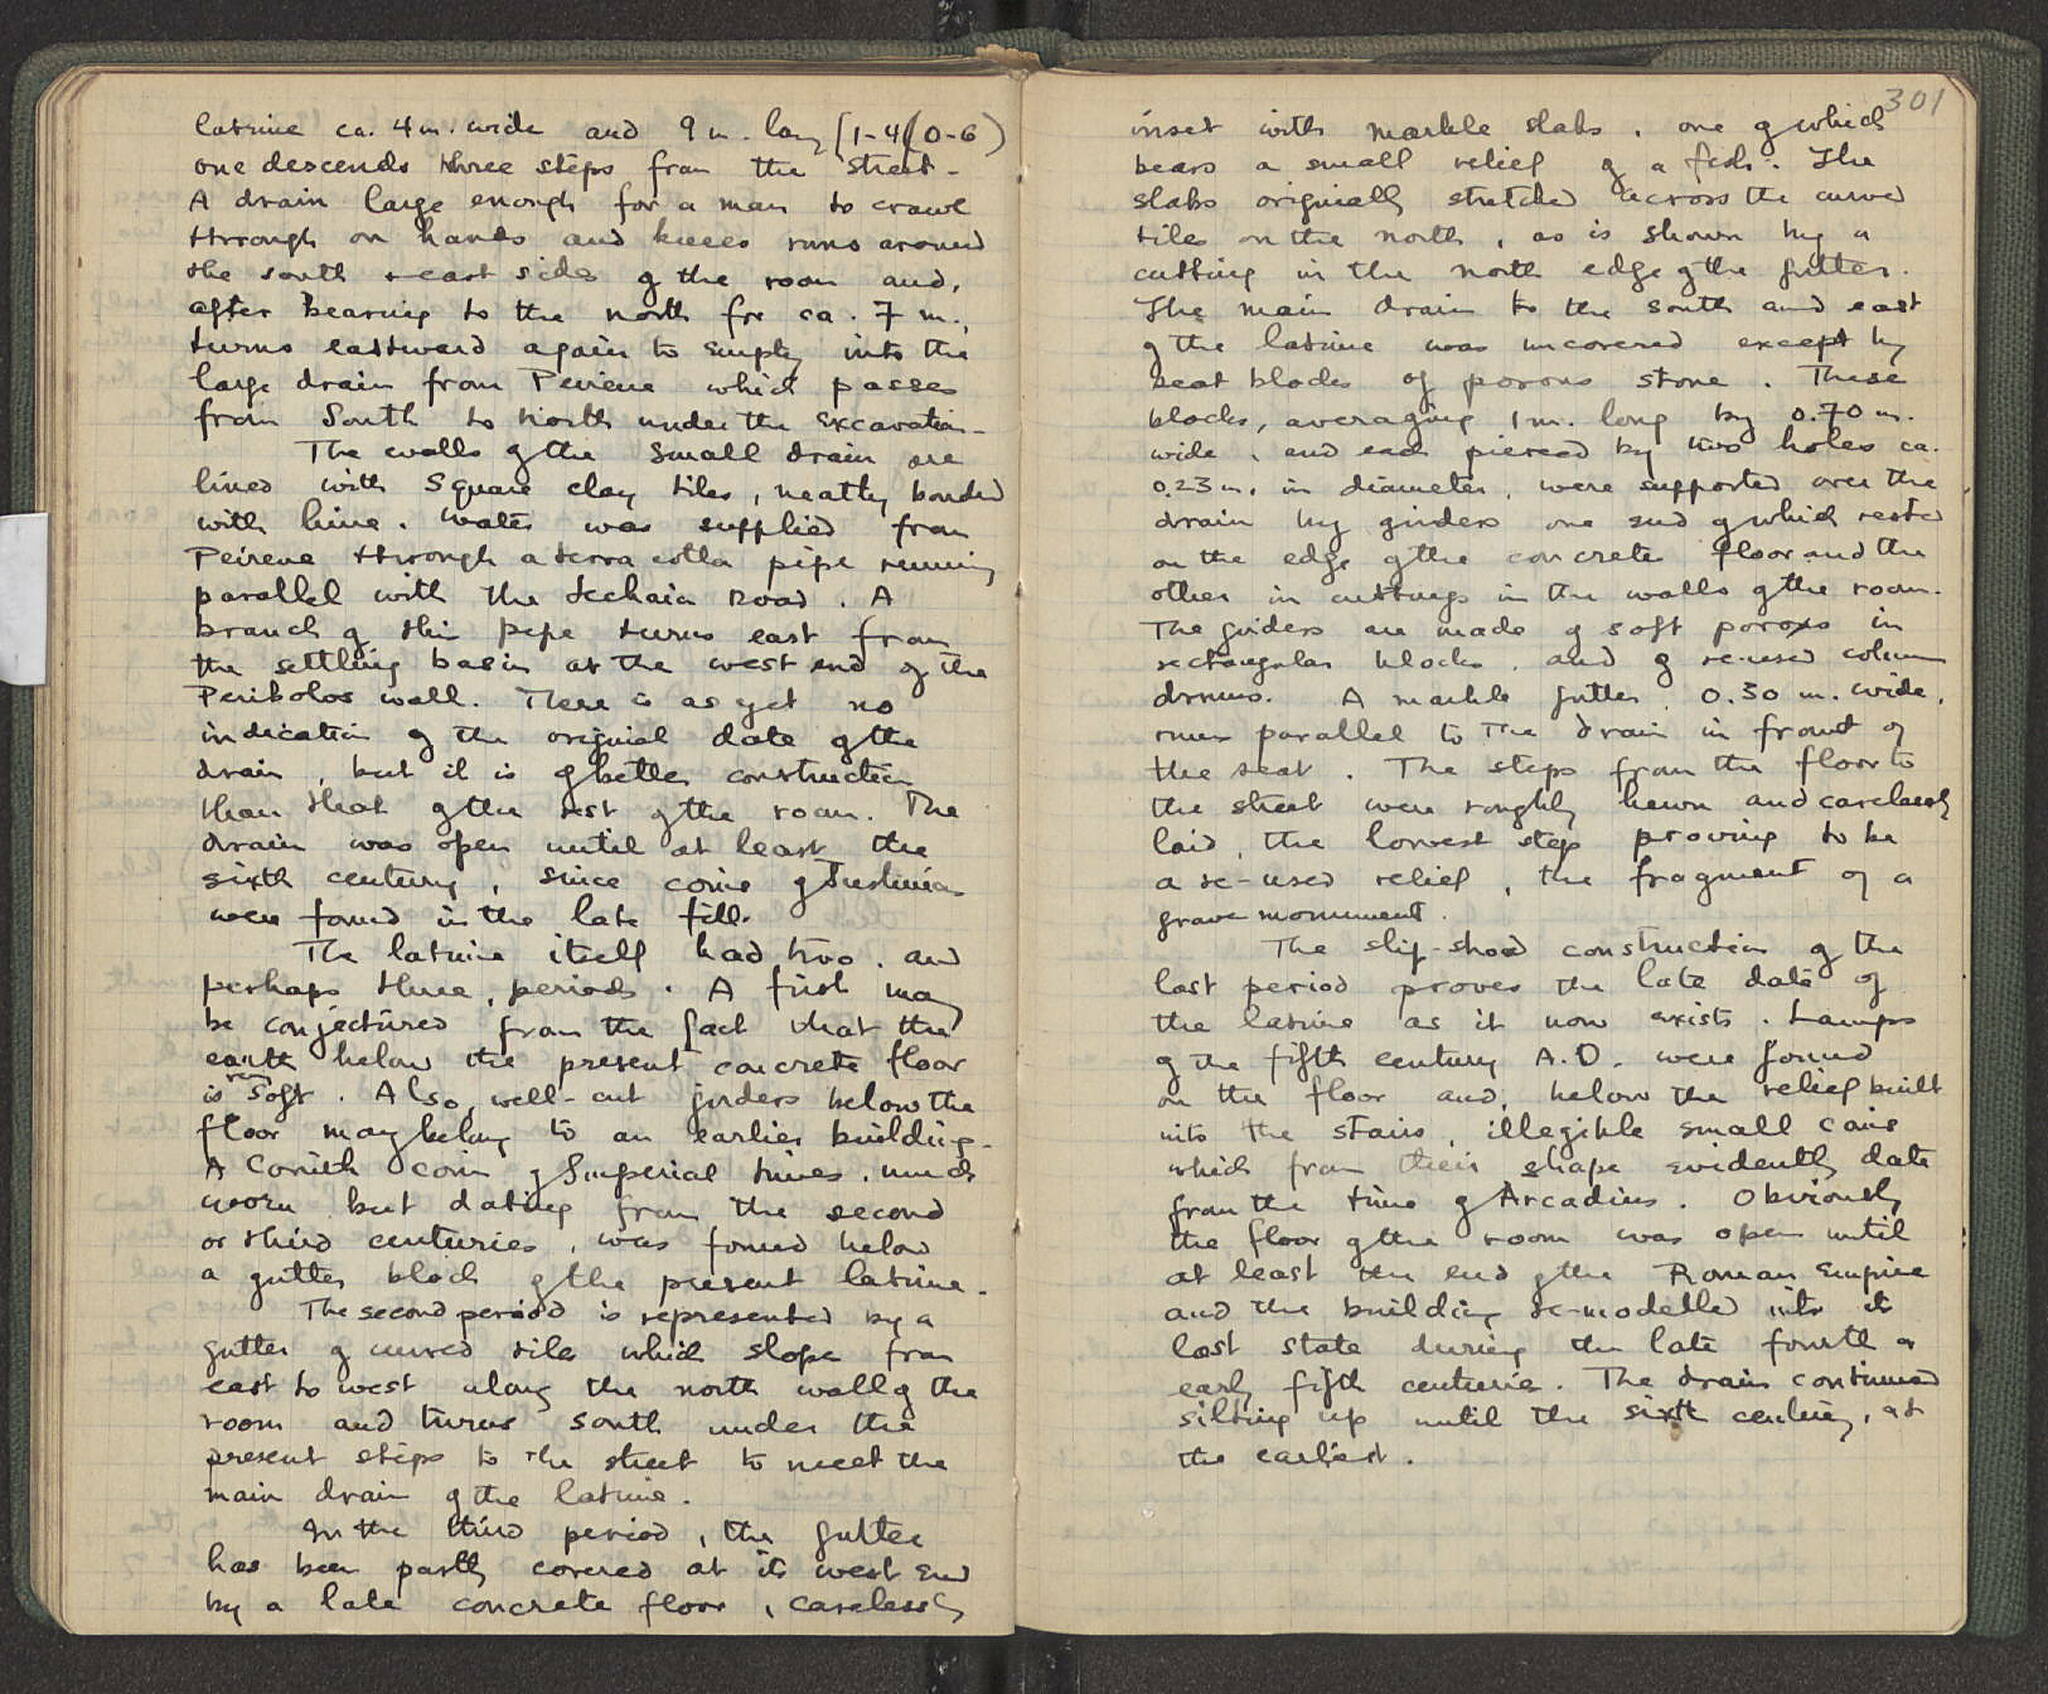 latrine ca. 4 m. wide and 9 m. long (1-4)(0-6)
one descends three steps from the street.
A drain large enough for a man to crawl
through on hands and knees runs around
the south & east sides of the room and,
after bearing to the north for ca. 7 m.,
turns eastward again to empty into the
large drain from Peirene which passes
from South to North under the excavation.
The walls of the small drain are
lined with square clay tiles, neatly bonded
with lime. Water was supplied from
Peirene through a terra cotta pipe running
parallel with the Lechaion Road. A
branch of this pipe turns east from
the settling basin at the west end of the
Peribolos wall. There is as yet no
indication of the original date of the
drain, but it is of better construction
than that of the rest of the room. The
drain was open until at least the
sixth century, since coins of Justinian
were found in the late fill.
The latrine itself had two, and
perhaps three, periods. A first may
be conjectured from the fact that the
earth below the present concrete floor
is very soft. Also, well-cut girders below the
floor may belong to an earlier building.
A Corinth coin of Imperial times, much
worn but dating from the second
or third centuries, was found below
a gutter block of the present latrine.
The second period is represented by a
gutter of curved tiles which slope from
east to west along the north wall of the
room and turns south under the
present steps to the street to meet the
main drain of the latrine.
In the third period, the gutter
has been partly covered at its west end
by a late concrete floor, carelessly
301
inset with marble slabs, one of which
bears a small relief of a fish. The
slabs originally stretched across the curved
tiles on the north, as is shown by a
cutting in the north edge of the gutter.
The main drain to the south and east
of the latrine was uncovered except by
seat blocks of porous stone. These
blocks, averaging 1 m. long by 0.70 m.
wide, and each pierced by two holes ca.
0.23 m. in diameter, were supported over the
drain by girders one end of which rested
on the edge of the concrete floor and the
other in cuttings in the walls of the room.
The girders are made of soft poros in
rectangular blocks, and of re-used column
drums. A marble gutter, 0.30 m. wide,
runs parallel to the drain in front of
the seat. The steps from the floor to
the street were roughly hewn and carelessly
laid, the lowest step proving to be
a re-used relief, the fragment of a
grave monument.
The slip-shod construction of the
last period proves the late date of
the latrine as it now exists. Lamps
of the fifth century A.D. were found
on the floor and, below the relief built
into the stairs, illegible small coins
which from their shape evidently date
from the time of Arcadius. Obviously
the floor of the room was open until
at least the end of the Roman Empire
and the building re-modelled into its
last state during the late fourth or
early fifth centuries. The drain continued
silting up until the sixth century, at
the earliest.